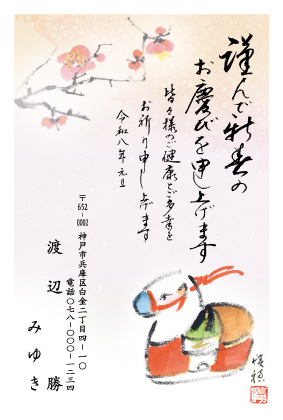 謹んで新春の
お慶びを申し上げます
皆々様のご健康とご多幸を
お祈り申し上げます
令和八年元旦
〒652-0003
神戸市兵庫区白金二丁目四-一〇
電話〇七八-〇〇〇-一二三四
渡辺 勝
みゆき